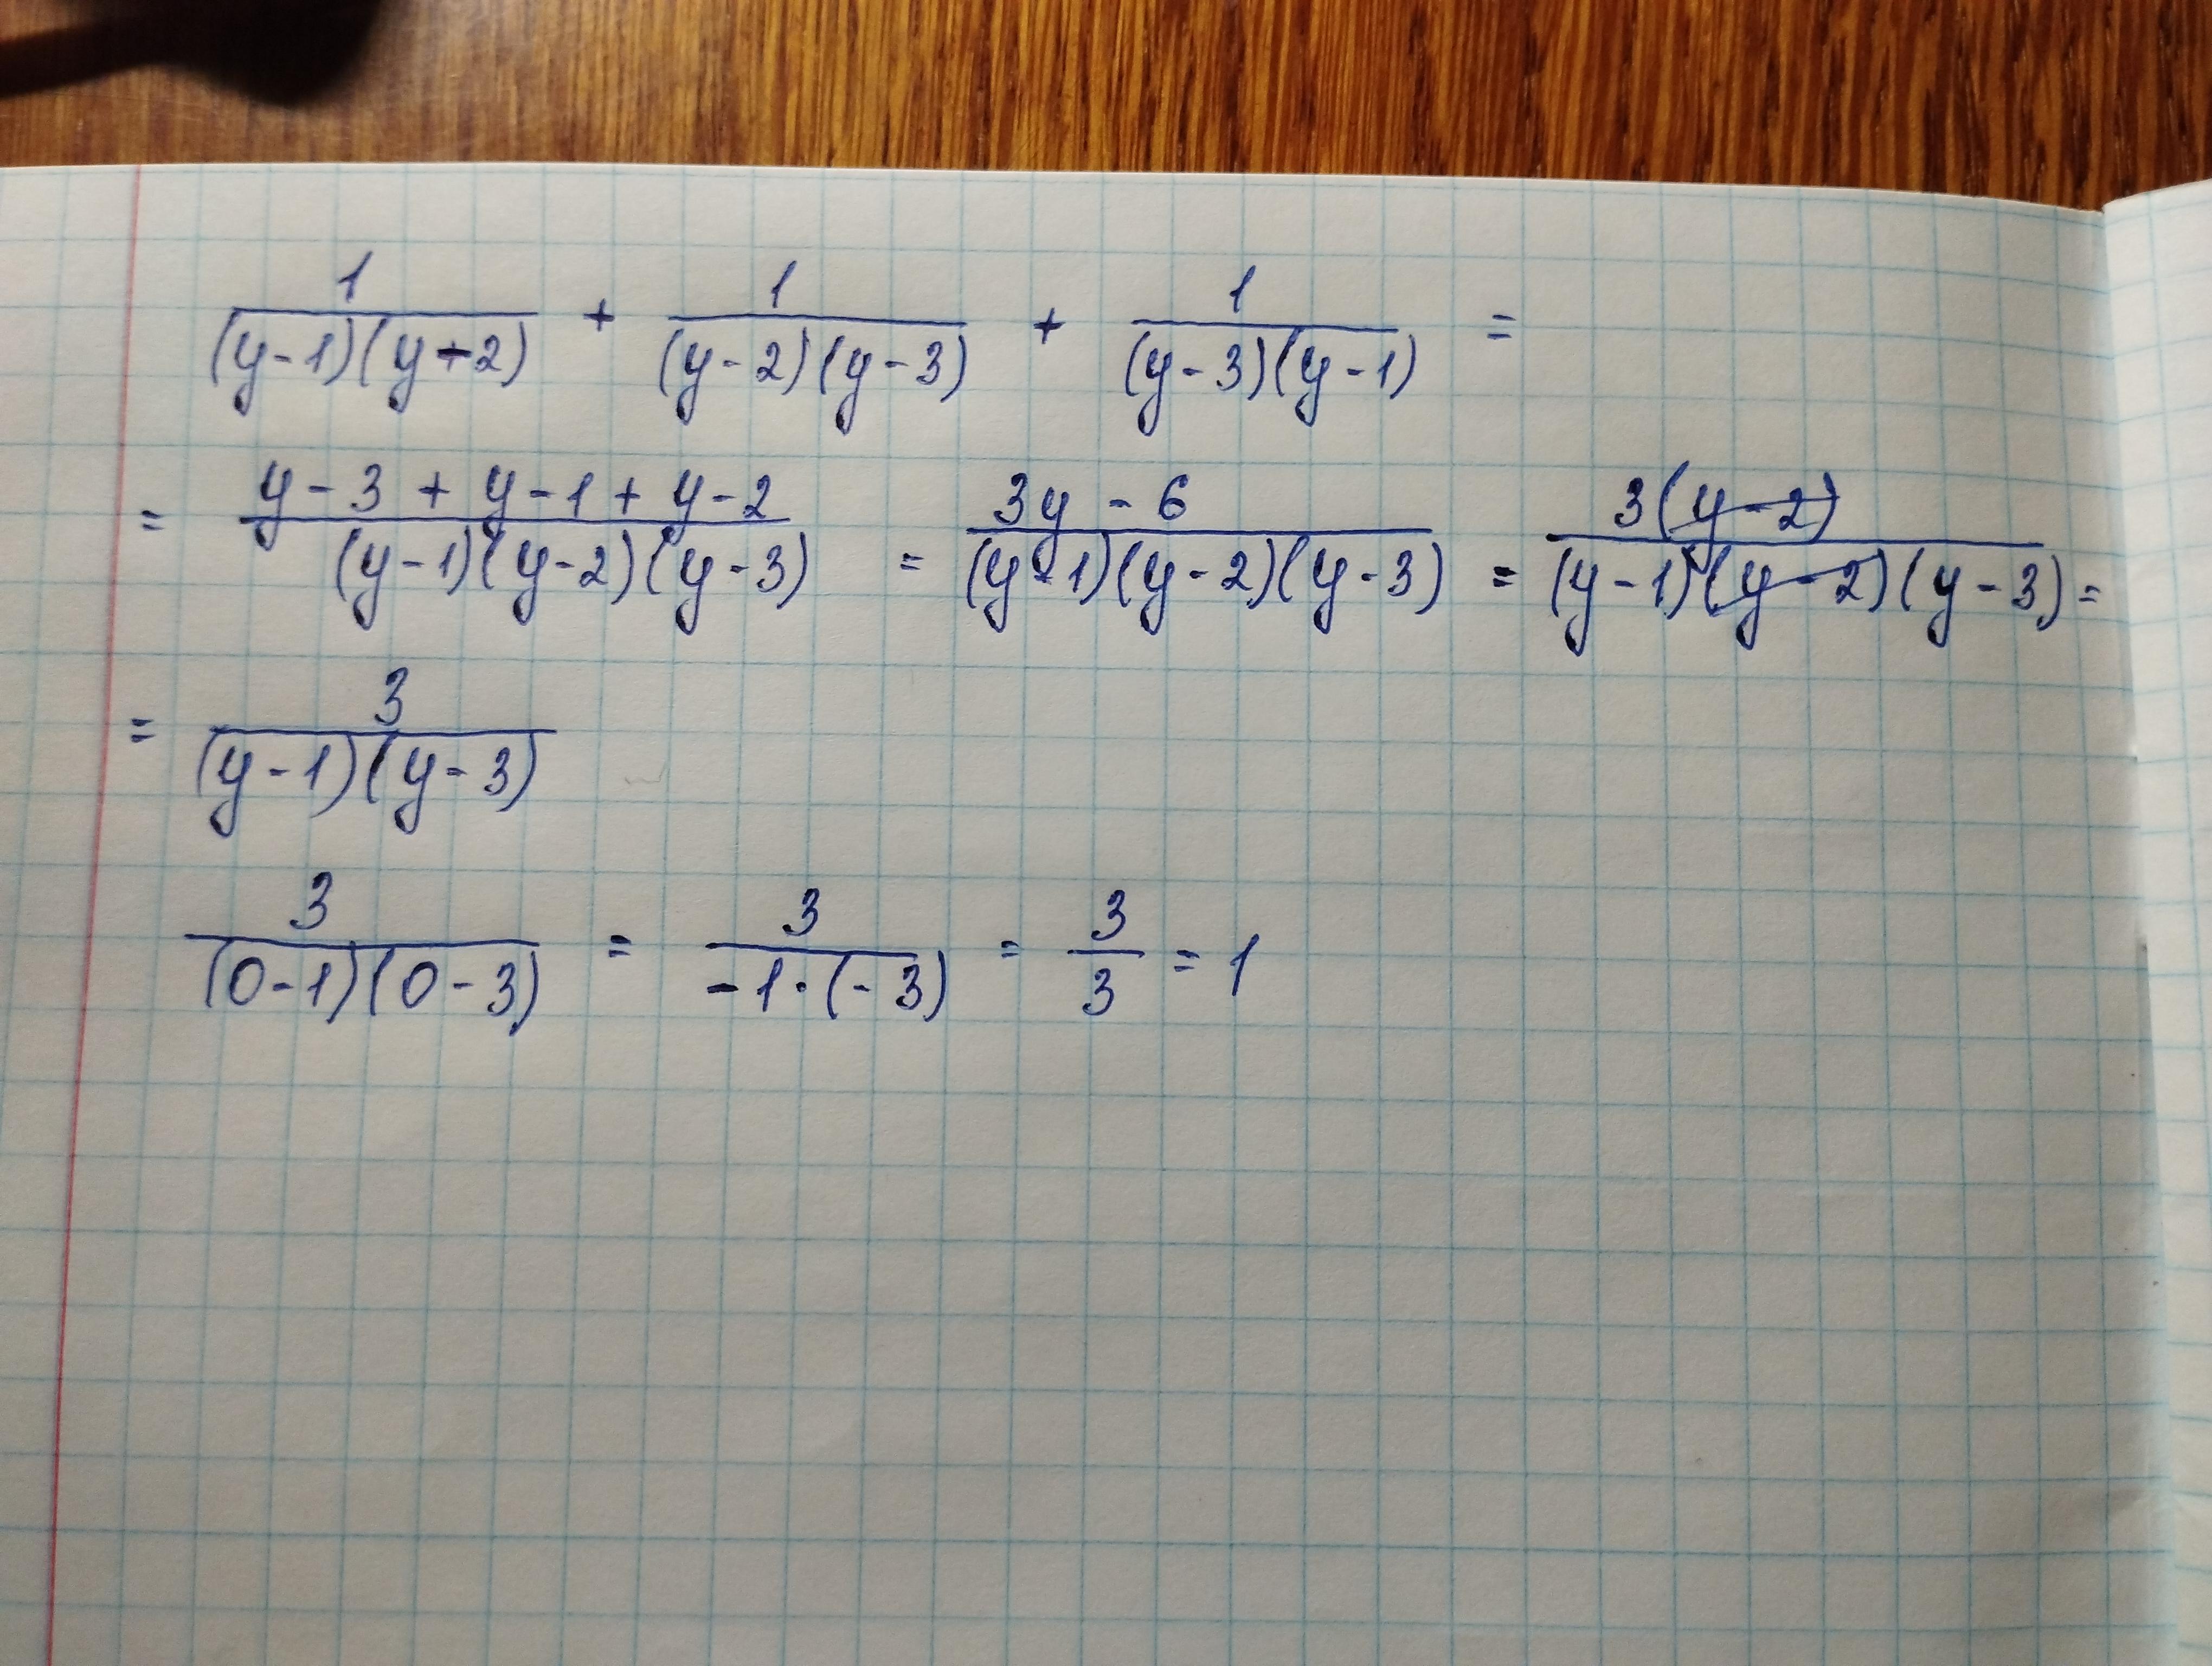 1/((y-1)(y+2)) + 1/((y-2)(y-3)) + 1/((y-3)(y-1)) =
= (y-3+y-1+y-2)/((y-1)(y-2)(y-3)) = (3y-6)/((y-1)(y-2)(y-3)) = 3(y-2)/((y-1)(y-2)(y-3)) =
= 3/((y-1)(y-3))
3/((0-1)(0-3)) = 3/(-1·(-3)) = 3/3 = 1